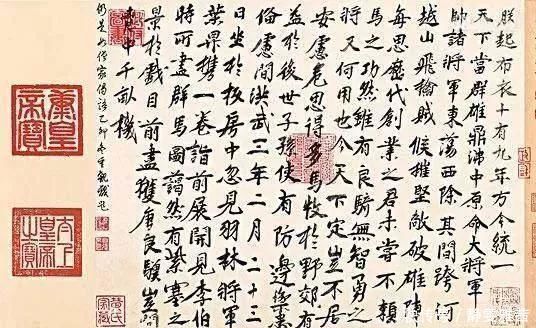 朕起布衣十有九年方今統一
天下當群雄鼎沸中原命大將軍
帥諸將軍東蕩西除其間跨河
越山飛擒賊候摧堅敵破雄陣
每思歷代創業之君未嘗不賴
馬之功然雖有良騎無智勇之
將又何用也今天下定豈不居
安慮危思得多馬牧於野郊有
益於後世子孫使有防邊禦患
備慮間洪武三年二月二十三
日坐於板房中忽見羽林將軍
葉昇携一卷詣前展開見李伯
時所畫群馬圖藹然有紫塞之
景於戲目前盡獲唐良驥豈問
胸中千畝機
太上皇帝之寶